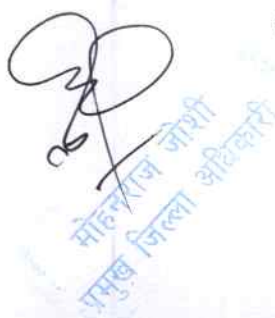 मोहनराज जोशी
प्रमुख जिल्ला अधिकारी